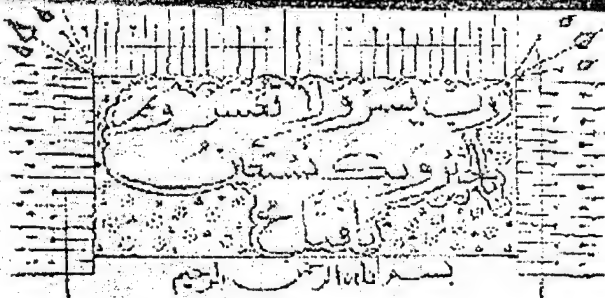 رب يسر ولا تعسر و
بالخير وبك نستعين
يا فتاح
بسم الله الرحمن الرحيم